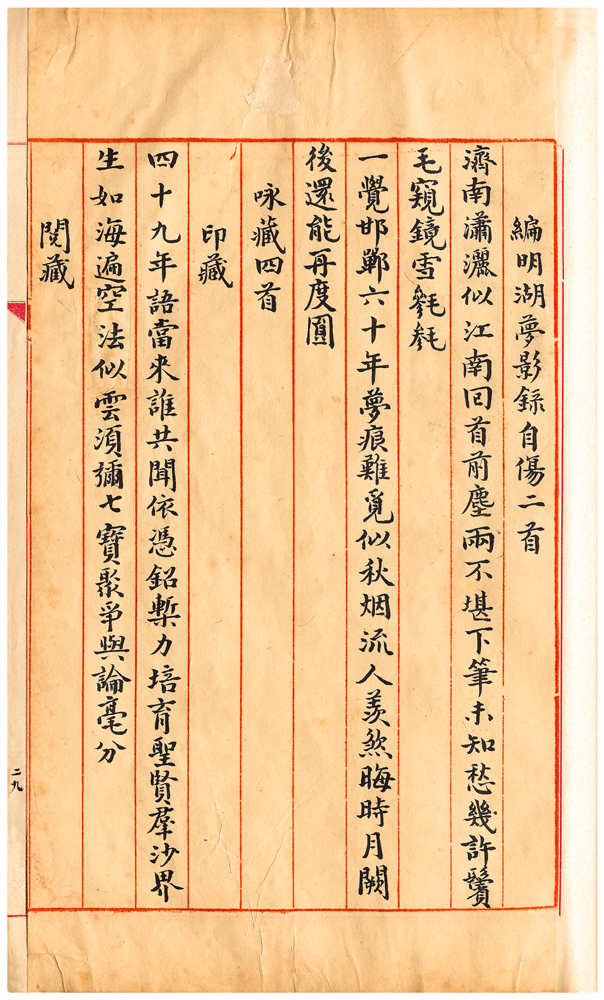 編明湖夢影錄自傷二首
濟南瀟灑似江南回首前塵兩不堪下筆未知愁幾許鬢
毛窺鏡雪毿毿
一覺邯鄲六十年夢痕難覓似秋烟流人羨煞晦時月闕
後還能再度圓
咏藏四首
印藏
四十九年語當來誰共聞依憑鉛槧力培育聖賢羣沙界
生如海遍空法似雲須彌七寶聚爭與論毫分
閱藏
二九